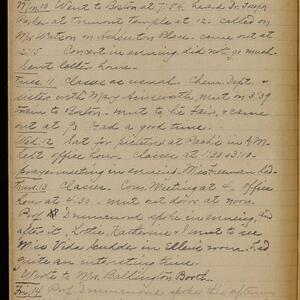 Mon. 10 Went to Boston at 7:54. heard Dr. Joseph
Parker at Tremont Temple at 12. called on
Mrs Watson on Ashburton Place. came out at
2:15 Concert in evening, did not go much.
Sent letter home.
Tues. 11 Classes as usual. Chem. Dept. &
sisters with Mary Ainsworth met on 3:39
train to Boston. went to the Fair, & came
out at 9. Had a good time.
Wed. 12 Sat for pictures at Pach's in A.M.
Kept office hour. Classes at 1:30 & 3:10.
prayermeeting in evening. Miss Freeman led.
Thurs. 13 Classes. Com. Meeting at 4. Office
hour at 4:30. went out door at noon.
Prof. Drummond spoke in evening, and
after it, Lottie, Katherine & I went to see
Miss Vida Scudder in Ellie's room. had
quite an interesting time.
Wrote to Mrs. Ballington Booth.
Fri. 14 Prof. Drummond spoke this afternoon